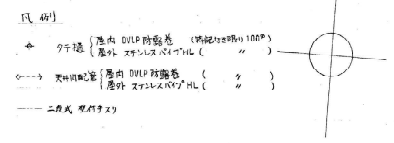 凡例
タテ樋 屋内 DVLP 防露巻 (特記なき限り 100φ)
屋外 ステンレスパイプHL ( 〃 )
天井内配管 屋内 DVLP 防露巻 ( 〃 )
屋外 ステンレスパイプHL ( 〃 )
二段式 取付手スリ